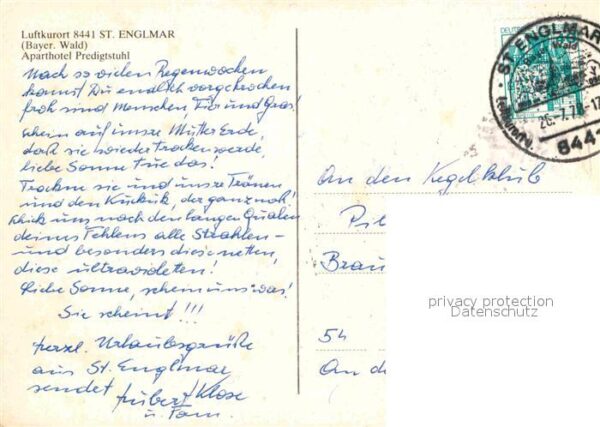 Luftkurort 8441 ST. ENGLMAR
(Bayer. Wald)
Aparthotel Predigtstuhl
Nach so vielen Regenwochen
kommst Du endlich vorgekrochen
froh sind Menschen, Tier und Gras!
Schein auf unsre Mutter Erde,
daß sie wieder trocken werde,
liebe Sonne tue das!
Trockne sie und unsre Tränen
und den Kuckuck, der ganz naß!
Schick uns nach den langen Qualen
deines Fehlens alle Strahlen –
und besonders diese netten,
diese ultravioletten!
Liebe Sonne, schein uns was!
Sie scheint!!!
herzl. Urlaubsgrüße
aus St. Englmar
sendet Hubert Klose
u. Fam.
ST ENGLMAR
Wald
26.-7.
8441
An den Kegelklub
Brau
54
An de
privacy protection
Datenschutz